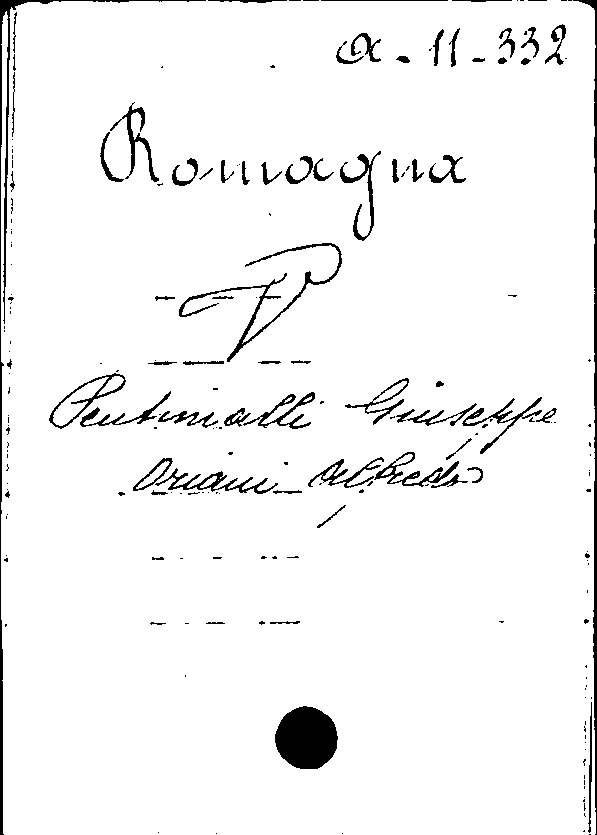 A - 11 - 332
Romagna
V
Pentimalli Giuseppe
Oriani Alfredo